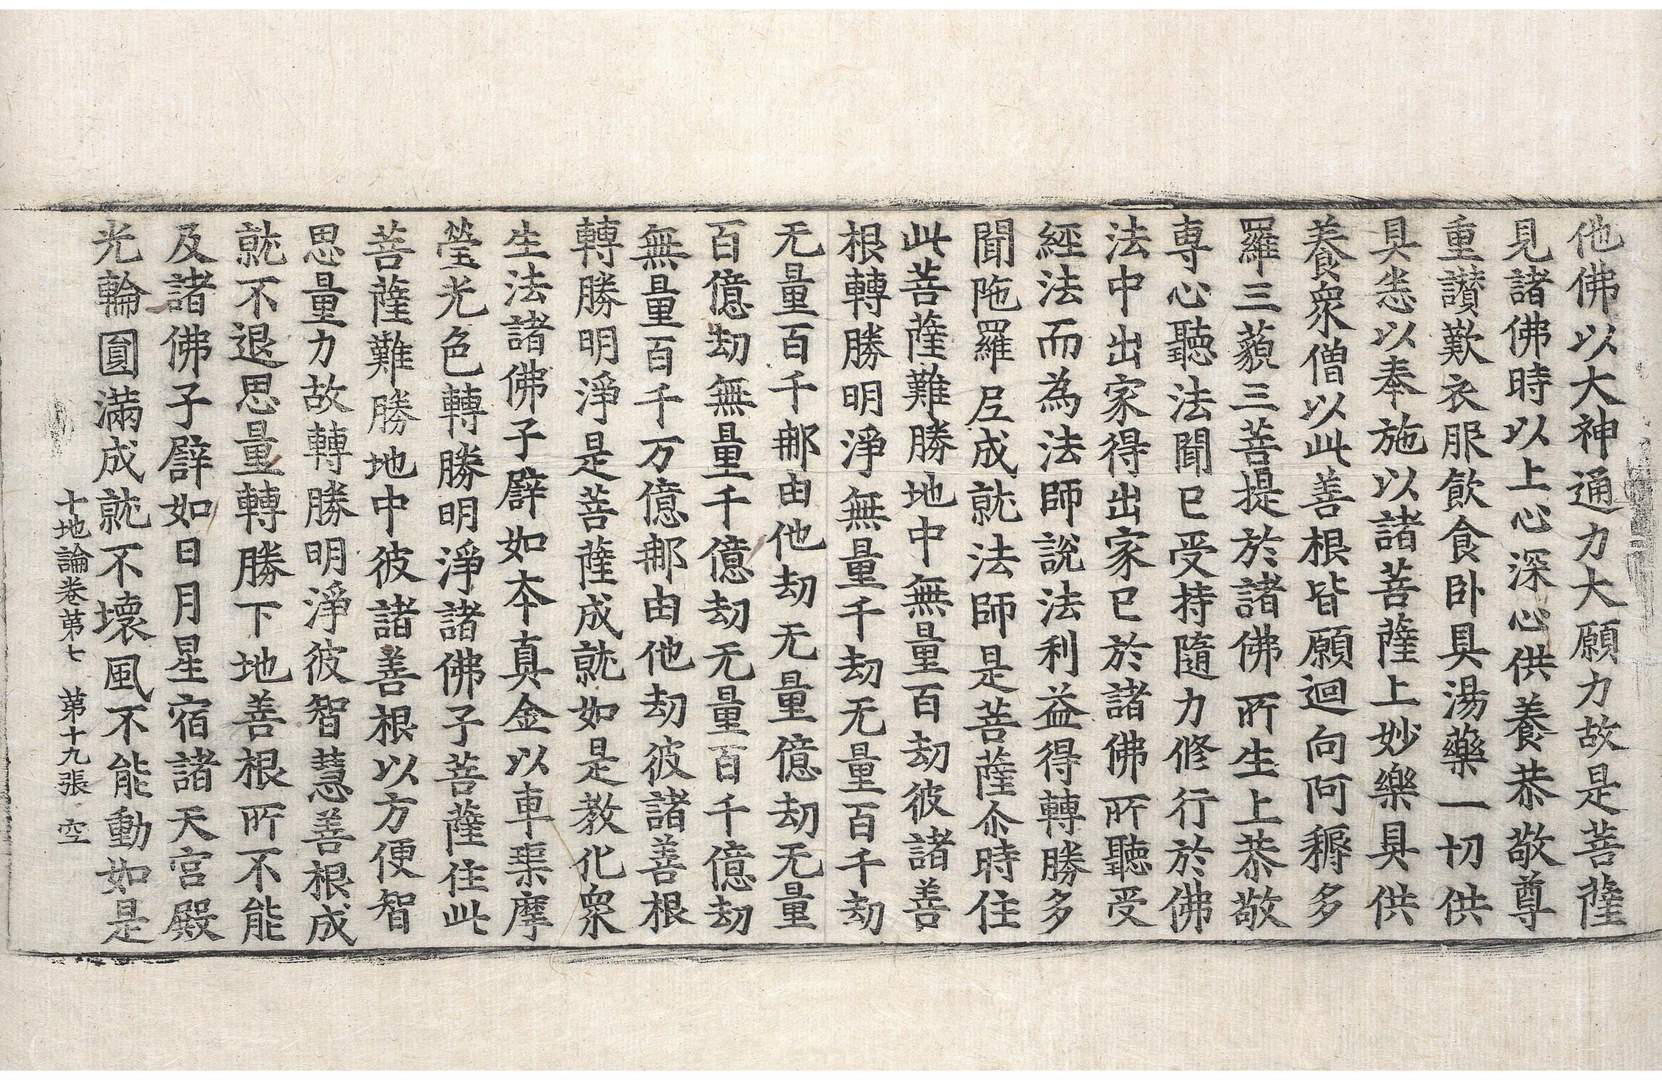 他佛以大神通力大願力故是菩薩
見諸佛時以上心深心供養恭敬尊
重讃歎衣服飲食卧具湯藥一切供
具悉以奉施以諸菩薩上妙樂具供
養衆僧以此善根皆願迴向阿耨多
羅三藐三菩提於諸佛所生上恭敬
専心聽法聞已受持隨力修行於佛
法中出家得出家已於諸佛所聽受
經法而為法師說法利益得轉勝多
聞陁羅尼成就法師是菩薩尒時住
此菩薩難勝地中無量百劫彼諸善
根轉勝明淨無量千劫无量百千劫
无量百千那由他劫无量億劫无量
百億劫無量千億劫无量百千億劫
無量百千万億那由他劫彼諸善根
轉勝明淨是菩薩成就如是教化衆
生法諸佛子譬如夲真金以車渠摩
瑩光色轉勝明淨諸佛子菩薩住此
菩薩難勝地中彼諸善根以方便智
思量力故轉勝明淨彼智慧善根成
就不退思量轉勝下地善根所不能
及諸佛子譬如日月星宿諸天宫殿
光輪圎滿成就不壞風不能動如是
十地論卷第七 第十九張 空